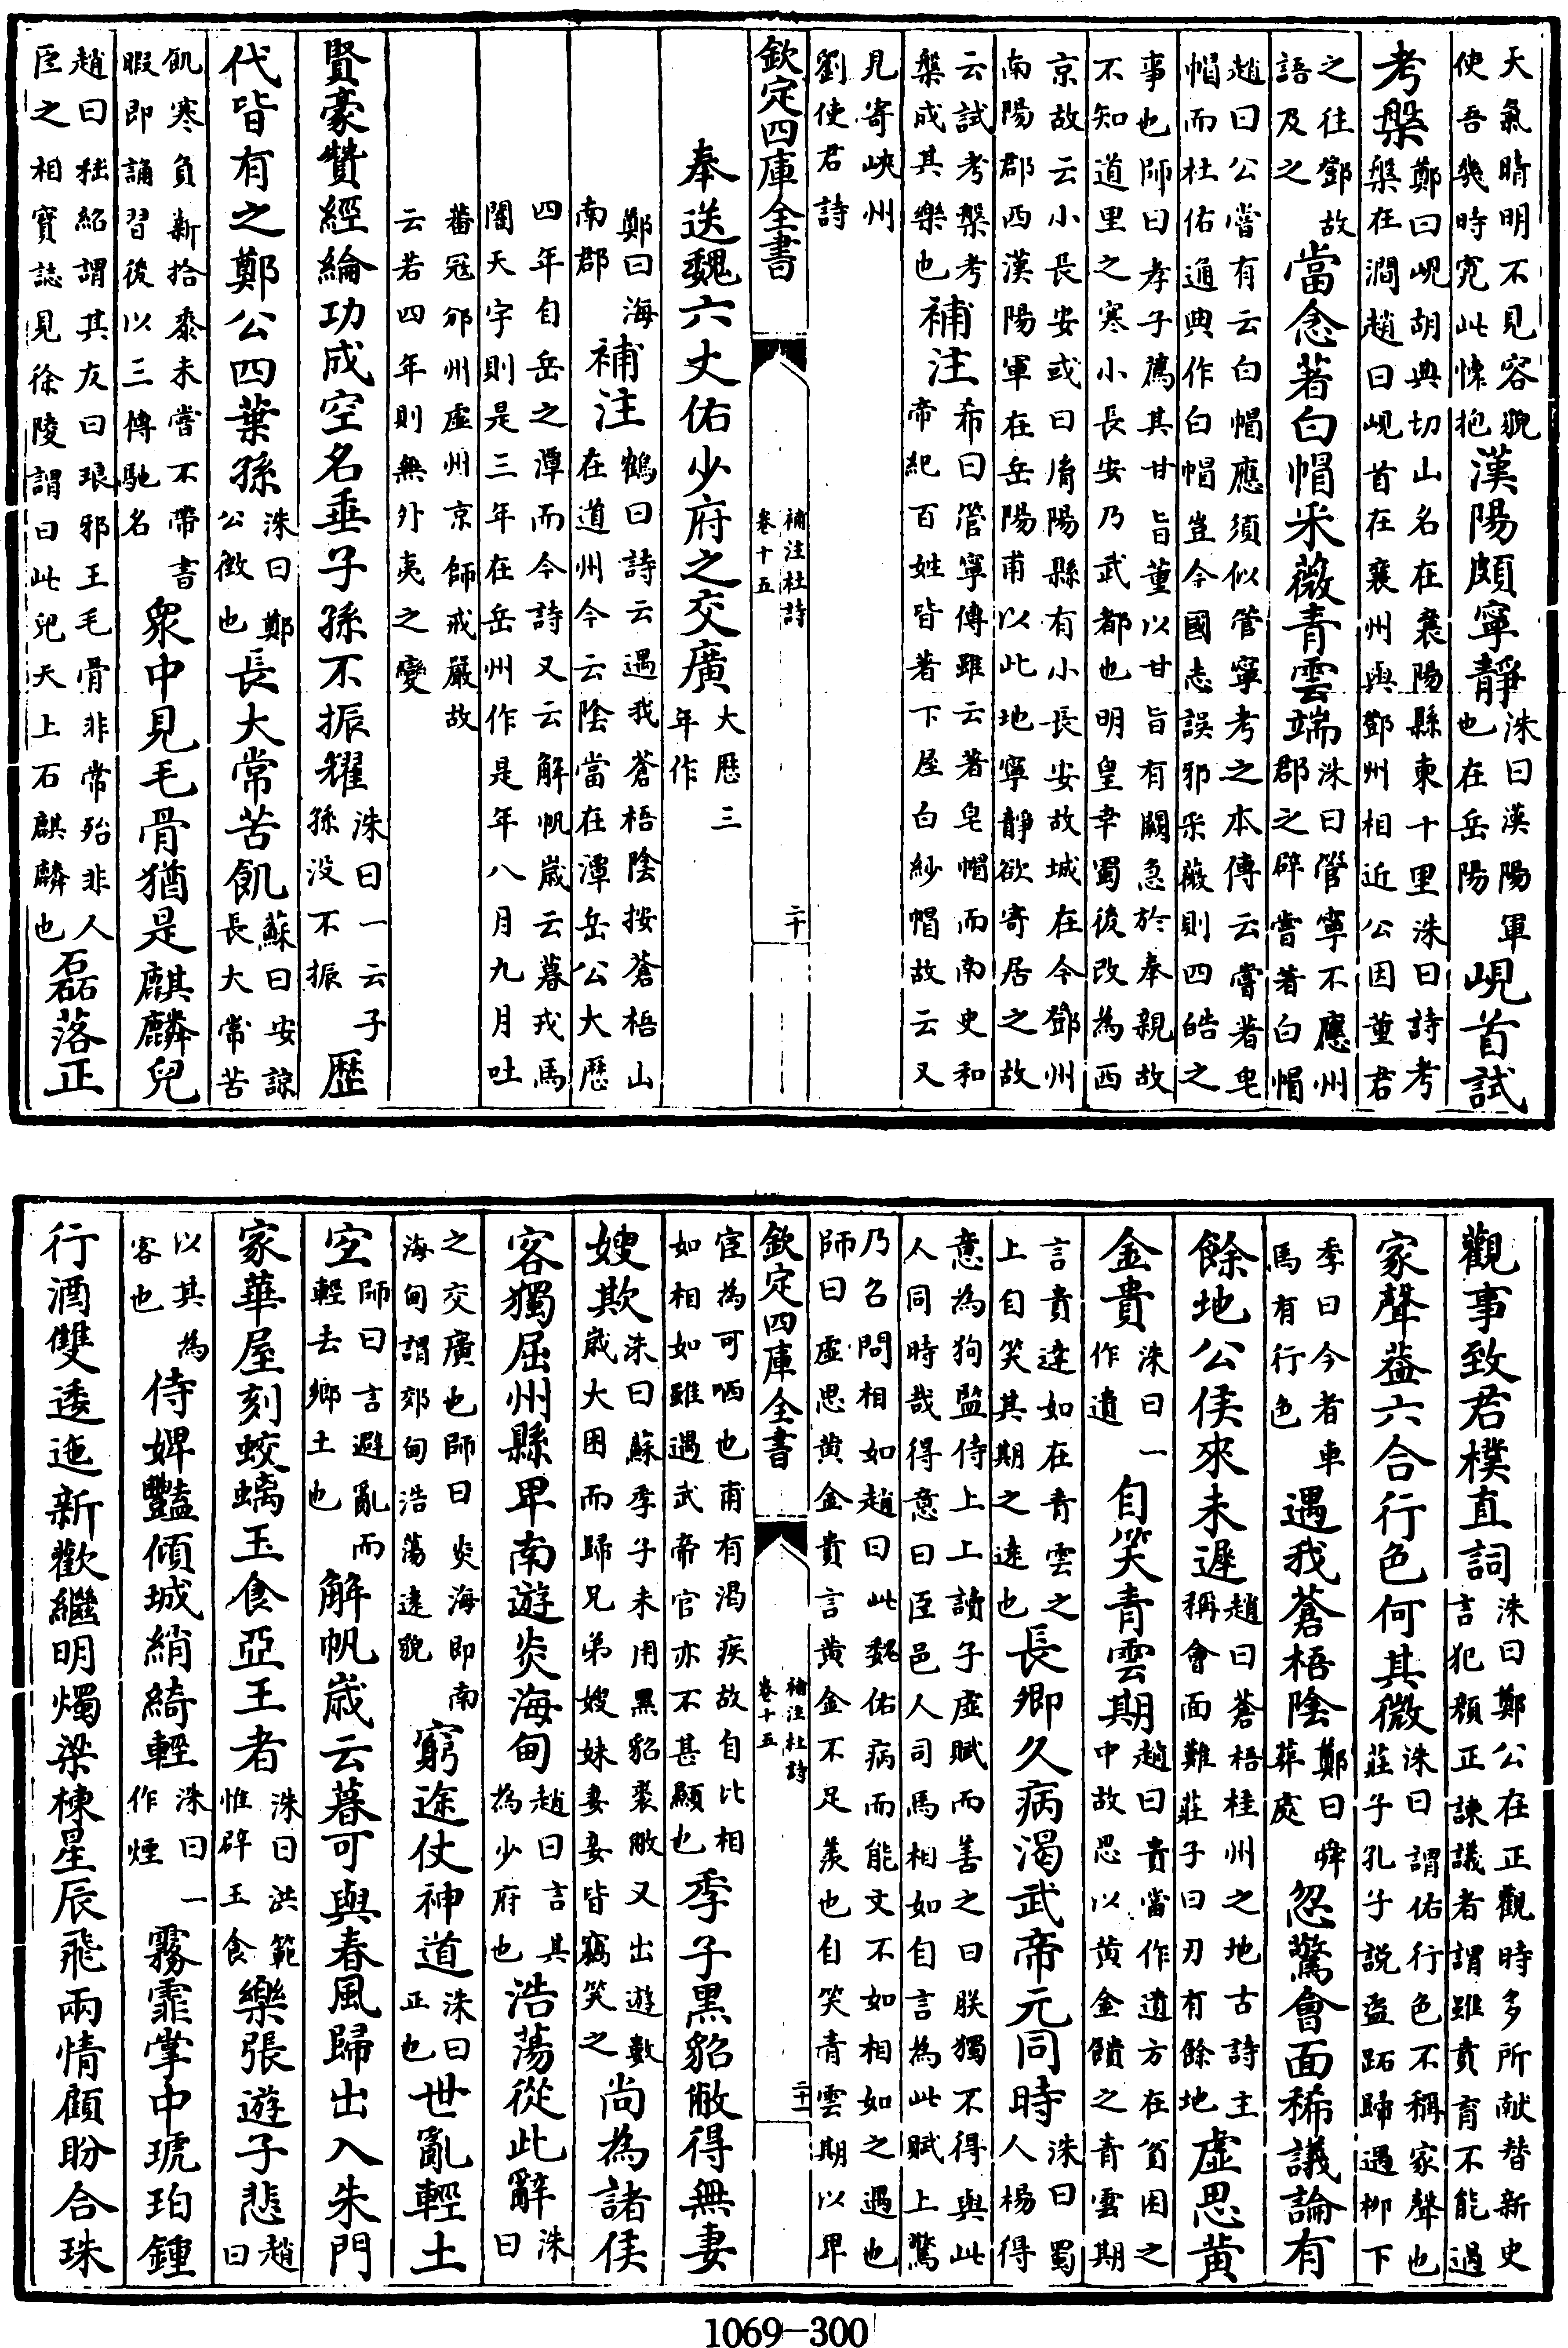 天氣晴明不見容貌使吾幾時寛此懷抱漢陽頗寧靜洙曰漢陽軍也在岳陽峴首試
考槃鄭曰峴胡典切山名在襄陽縣東十里洙曰詩考槃在澗趙曰峴首在襄州與鄧州相近公因董君
之往鄧故語及之當念著白帽采薇青雲端洙曰管寧不應州郡之辟嘗著白帽
趙曰公嘗有云白帽應須似管寧考之本傳云嘗著皂帽而杜佑通典作白帽豈今國志誤邪采薇則四皓之
事也師曰孝子薦其甘旨董以甘旨有闕急於奉親故不知道里之寒小長安乃武都也明皇幸蜀後改為西
京故云小長安或曰淯陽縣有小長安故城在今鄧州南陽郡西漢陽軍在岳陽甫以此地寧靜欲寄居之故
云試考槃考槃成其樂也補注希曰管寧傳雖云著皂帽而南史和帝紀百姓皆著下屋白紗帽故云又
見寄峽州劉使君詩
欽定四庫全書 補注杜詩卷十五 二十
奉送魏六丈佑少府之交廣大歴三年作
鄭曰海南郡補注鶴曰詩云遇我蒼梧陰按蒼梧山在道州今云陰當在潭岳公大歴
四年自岳之潭而今詩又云解帆歳云暮戎馬闇天宇則是三年在岳州作是年八月九月吐
蕃冦邠州虚州京師戒嚴故云若四年則無外夷之變
賢豪贊經綸功成空名垂子孫不振耀洙曰一云子孫没不振歴
代皆有之鄭公四葉孫洙曰鄭公徵也長大常苦飢蘇曰安諒長大常苦
飢寒負薪拾黍未嘗不帶書暇即誦習後以三傳馳名衆中見毛骨猶是麒麟兒
趙曰嵇紹謂其友曰琅邪王毛骨非常殆非人臣之相寳誌見徐陵謂曰此兒天上石麒麟也磊落正
觀事致君樸直詞洙曰鄭公在正觀時多所献替新史言犯顔正諫議者謂雖賁育不能過
家聲蓋六合行色何其微洙曰謂佑行色不稱家聲也莊子孔子説盗跖歸遇栁下
季曰今者車馬有行色遇我蒼梧陰鄭曰舜葬處忽驚會面稀議論有
餘地公侯來未遲趙曰蒼梧桂州之地古詩主稱會面難莊子曰刃有餘地虚思黄
金貴洙曰一作遺自笑青雲期趙曰貴當作遺方在貧困之中故思以黄金饋之青雲期
言貴逹如在青雲之上自笑其期之逺也長卿久病渇武帝元同時洙曰蜀人楊得
意為狗監侍上上讀子虚賦而善之曰朕獨不得與此人同時哉得意曰臣邑人司馬相如自言為此賦上驚
乃召問相如趙曰此魏佑病而能文不如相如之遇也師曰虚思黄金貴言黄金不足羡也自笑青雲期以卑
欽定四庫全書 補注杜詩卷十五 二十一
宦為可哂也甫有渇疾故自比相如相如雖遇武帝官亦不甚顯也季子黒貂敝得無妻
嫂欺洙曰蘇季子未用黒貂裘敝又出遊數歳大困而歸兄弟嫂妹妻妾皆竊笑之尚為諸侯
客獨屈州縣卑南遊炎海甸趙曰言其為少府也浩蕩從此辭洙曰
之交廣也師曰炎海即南海甸謂郊甸浩蕩逺貌窮途仗神道洙曰正也世亂輕土
宜師曰言避亂而輕去鄉土也解帆歳云暮可與春風歸出入朱門
家華屋刻蛟螭玉食亞王者洙曰洪範惟辟玉食樂張遊子悲趙曰
以其為客也侍婢豔傾城綃綺輕洙曰一作煙霧霏掌中琥珀鍾
行酒雙逶迤新歡繼明燭梁棟星辰飛兩情顧盼合珠
1069—300